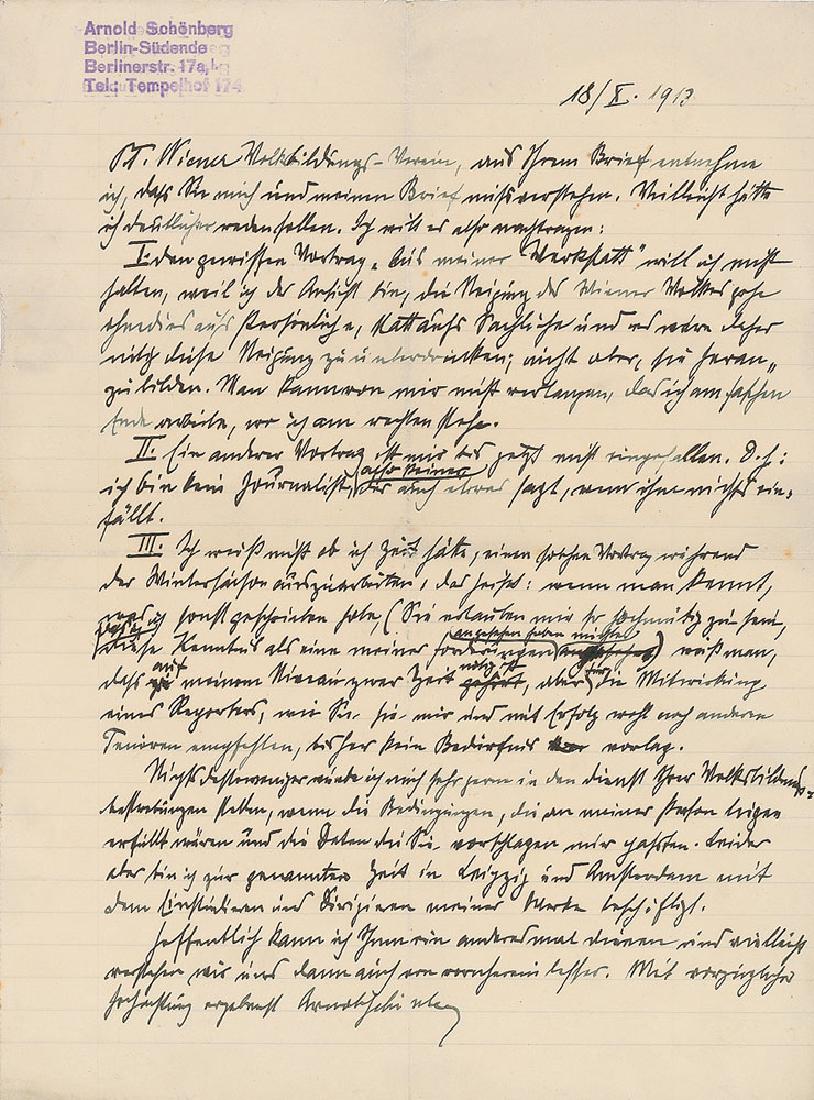 Arnold Schönberg
Berlin-Südende
Berlinerstr. 17a, I.
Tel: Tempelhof 174
18/X. 1913
P.T. Wiener Volksbildungs-Verein, aus Ihrem Brief entnehme
ich, dass Sie mich und meinen Brief missverstehen. Vielleicht hätte
ich deutlicher reden sollen. Ich will es also nachtragen:
I. den gewissen Vortrag „Aus meiner Werkstatt" will ich nicht
halten, weil ich der Ansicht bin, die Neigung des Wiener Volkes gehe
ohnedies aufs Persönliche, statt aufs Sachliche und es wäre daher
diese Neigung zu unterdrücken; nicht aber, sie heran-
zubilden. Man kann von mir nicht verlangen, dass ich am falschen
Ende arbeite, wo ich am rechten stehe.
II. Ein anderer Vortrag ist mir bis jetzt nicht eingefallen. D. h:
ich bin kein Journalist, (also keiner) der auch etwas sagt, wenn ihm nichts ein-
fällt.
III. Ich weiß nicht ob ich Zeit hätte, einen solchen Vortrag während
der Wintersaison auszuarbeiten, das heisst: wenn man kennt,
was ich sonst geschrieben habe, (Sie erlauben mir so hochmütig zu sein,
diese Kenntnis als eine meiner Forderungen angesehen haben möchte) weiß man,
dass auf meinem Niveau zwar Zeit nötig ist, aber für die Mitwirkung
eines Reporters, wie Sie sie mir und mit Erfolg wohl noch anderen
empfehlen, bisher kein Bedürfnis vorlag.
Nichtsdestoweniger würde ich mich sehr gern in den Dienst Ihrer Volksbildungs-
bestrebungen stellen, wenn die Bedingungen, die an meiner Person liegen
erfüllt wären und die Daten die Sie vorschlagen mir passten. Leider
aber bin ich zur genannten Zeit in Leipzig und Amsterdam mit
dem Einstudieren und Dirigieren meiner Werke beschäftigt.
Hoffentlich kann ich Ihnen ein anderesmal dienen und vielleicht
verstehen wir uns dann auch von vornherein besser. Mit vorzüglicher
Hochachtung ergebenst Arnold Schönberg